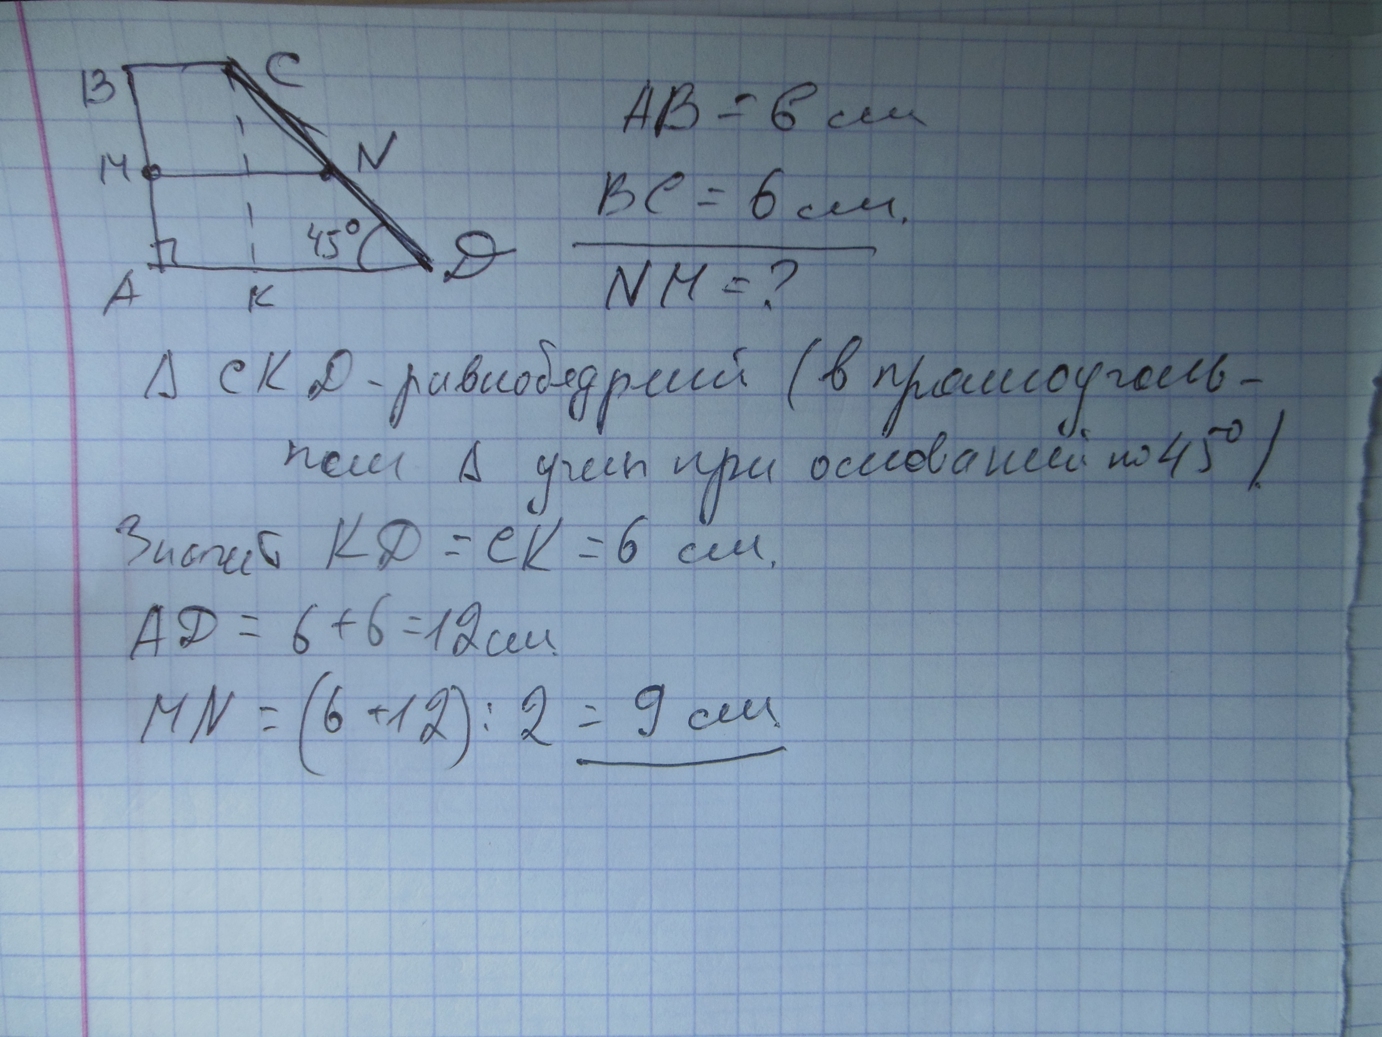 B C
AB = 6 см
M N
BC = 6 см.
45°
A K D
NM = ?
Δ CKD - равнобедрений (в прямоуголь-
ном Δ углы при оснований по 45°).
Значит KD = CK = 6 см.
AD = 6 + 6 = 12 см.
MN = (6 + 12) : 2 = 9 см.